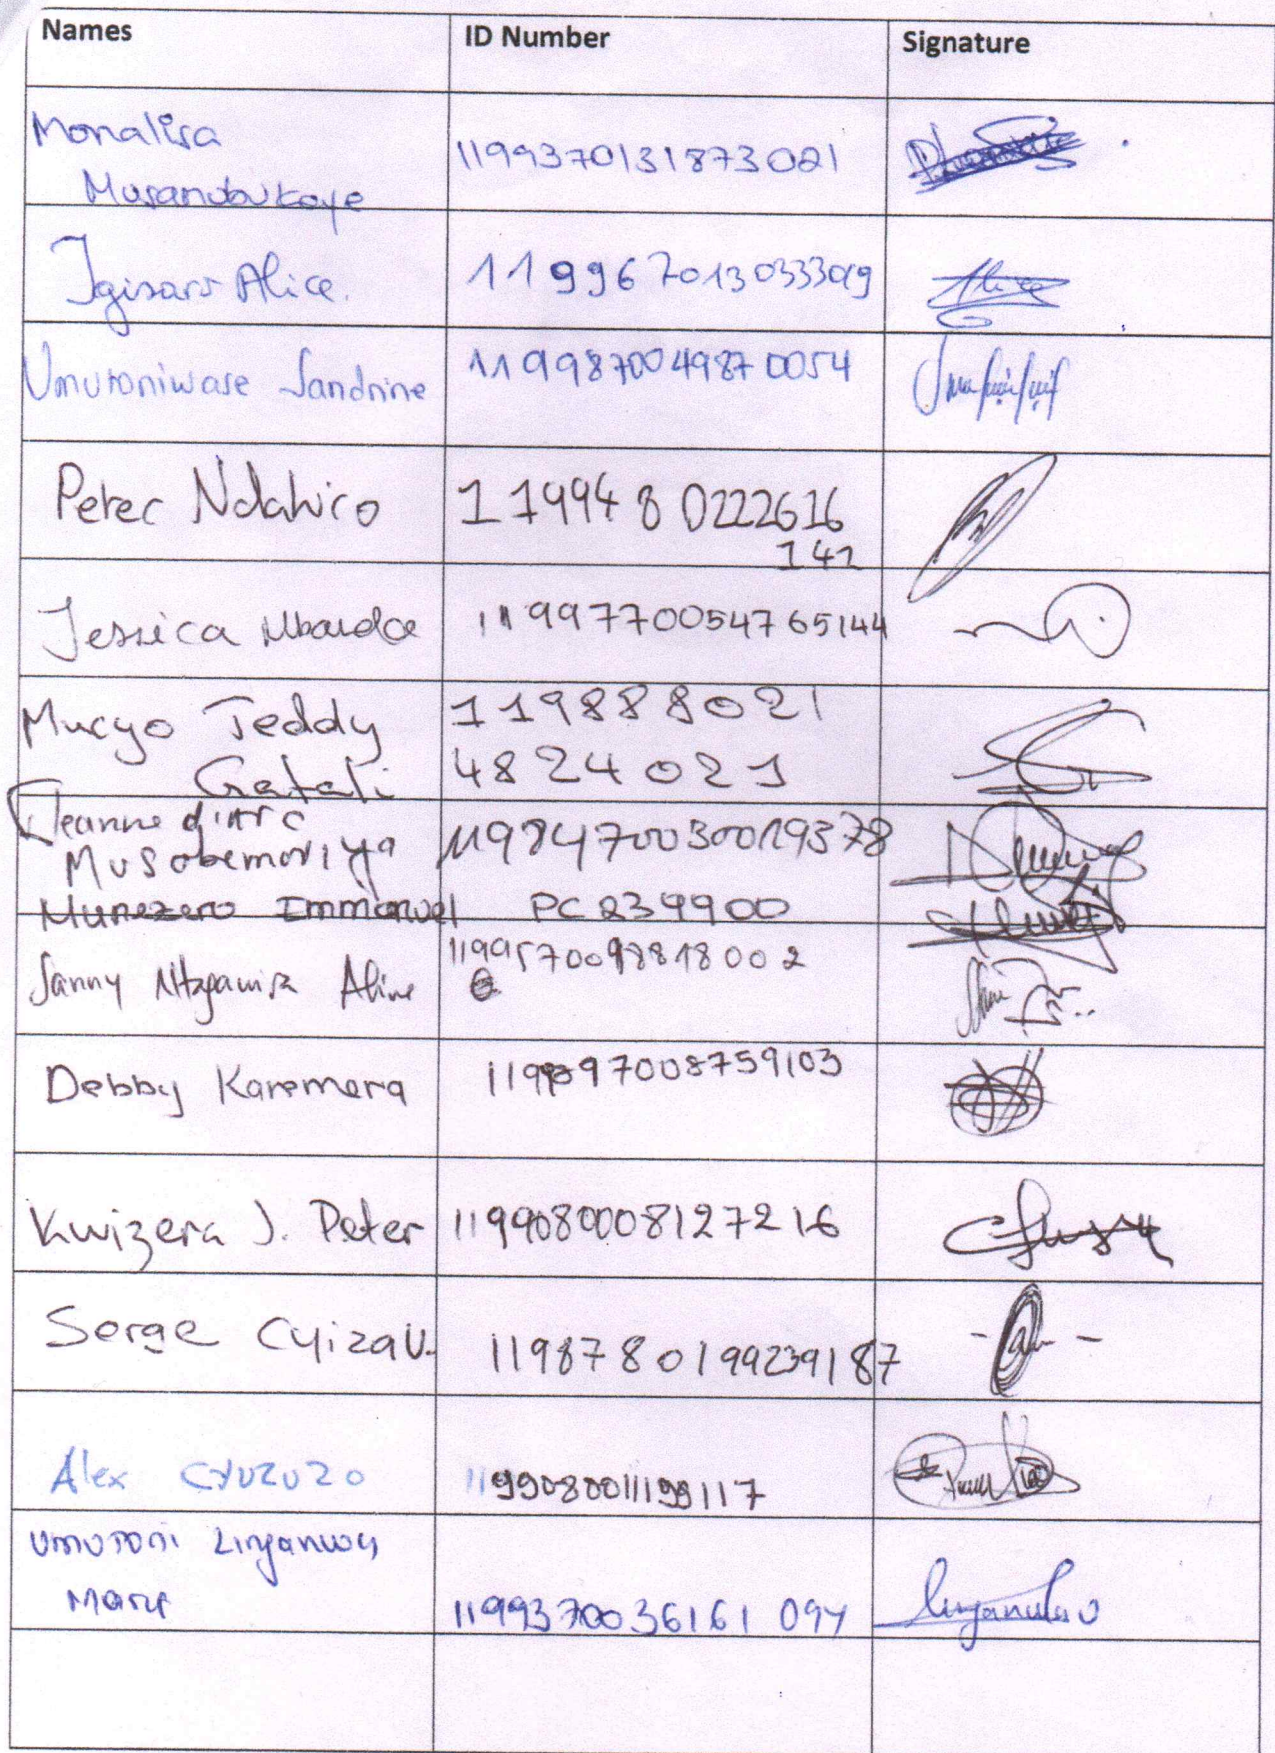 Names ID Number Signature
Monalisa
Musanabukaye 1199370131873021
Alice 1199670130333019
Umutoniwase Sandrine 1199870049870054
Peter Ndahiro 119948 0222616
142
Jessica Mbanda 1199770054765144
Mucyo Teddy 119888021
Gatali 4824021
Jeanne d'Arc
Musabemariya 1198470030019378
Munezero Immanuel PC 239900
Sanny Aline 1199570098818002
Debby Karemera
Kwizera J. Peter 1199080008127216
Serge Cyiza U. 1198780199239187
Alex Cyuzuzo 1199080011199117
Umutoni
Marie 1199370036161 094